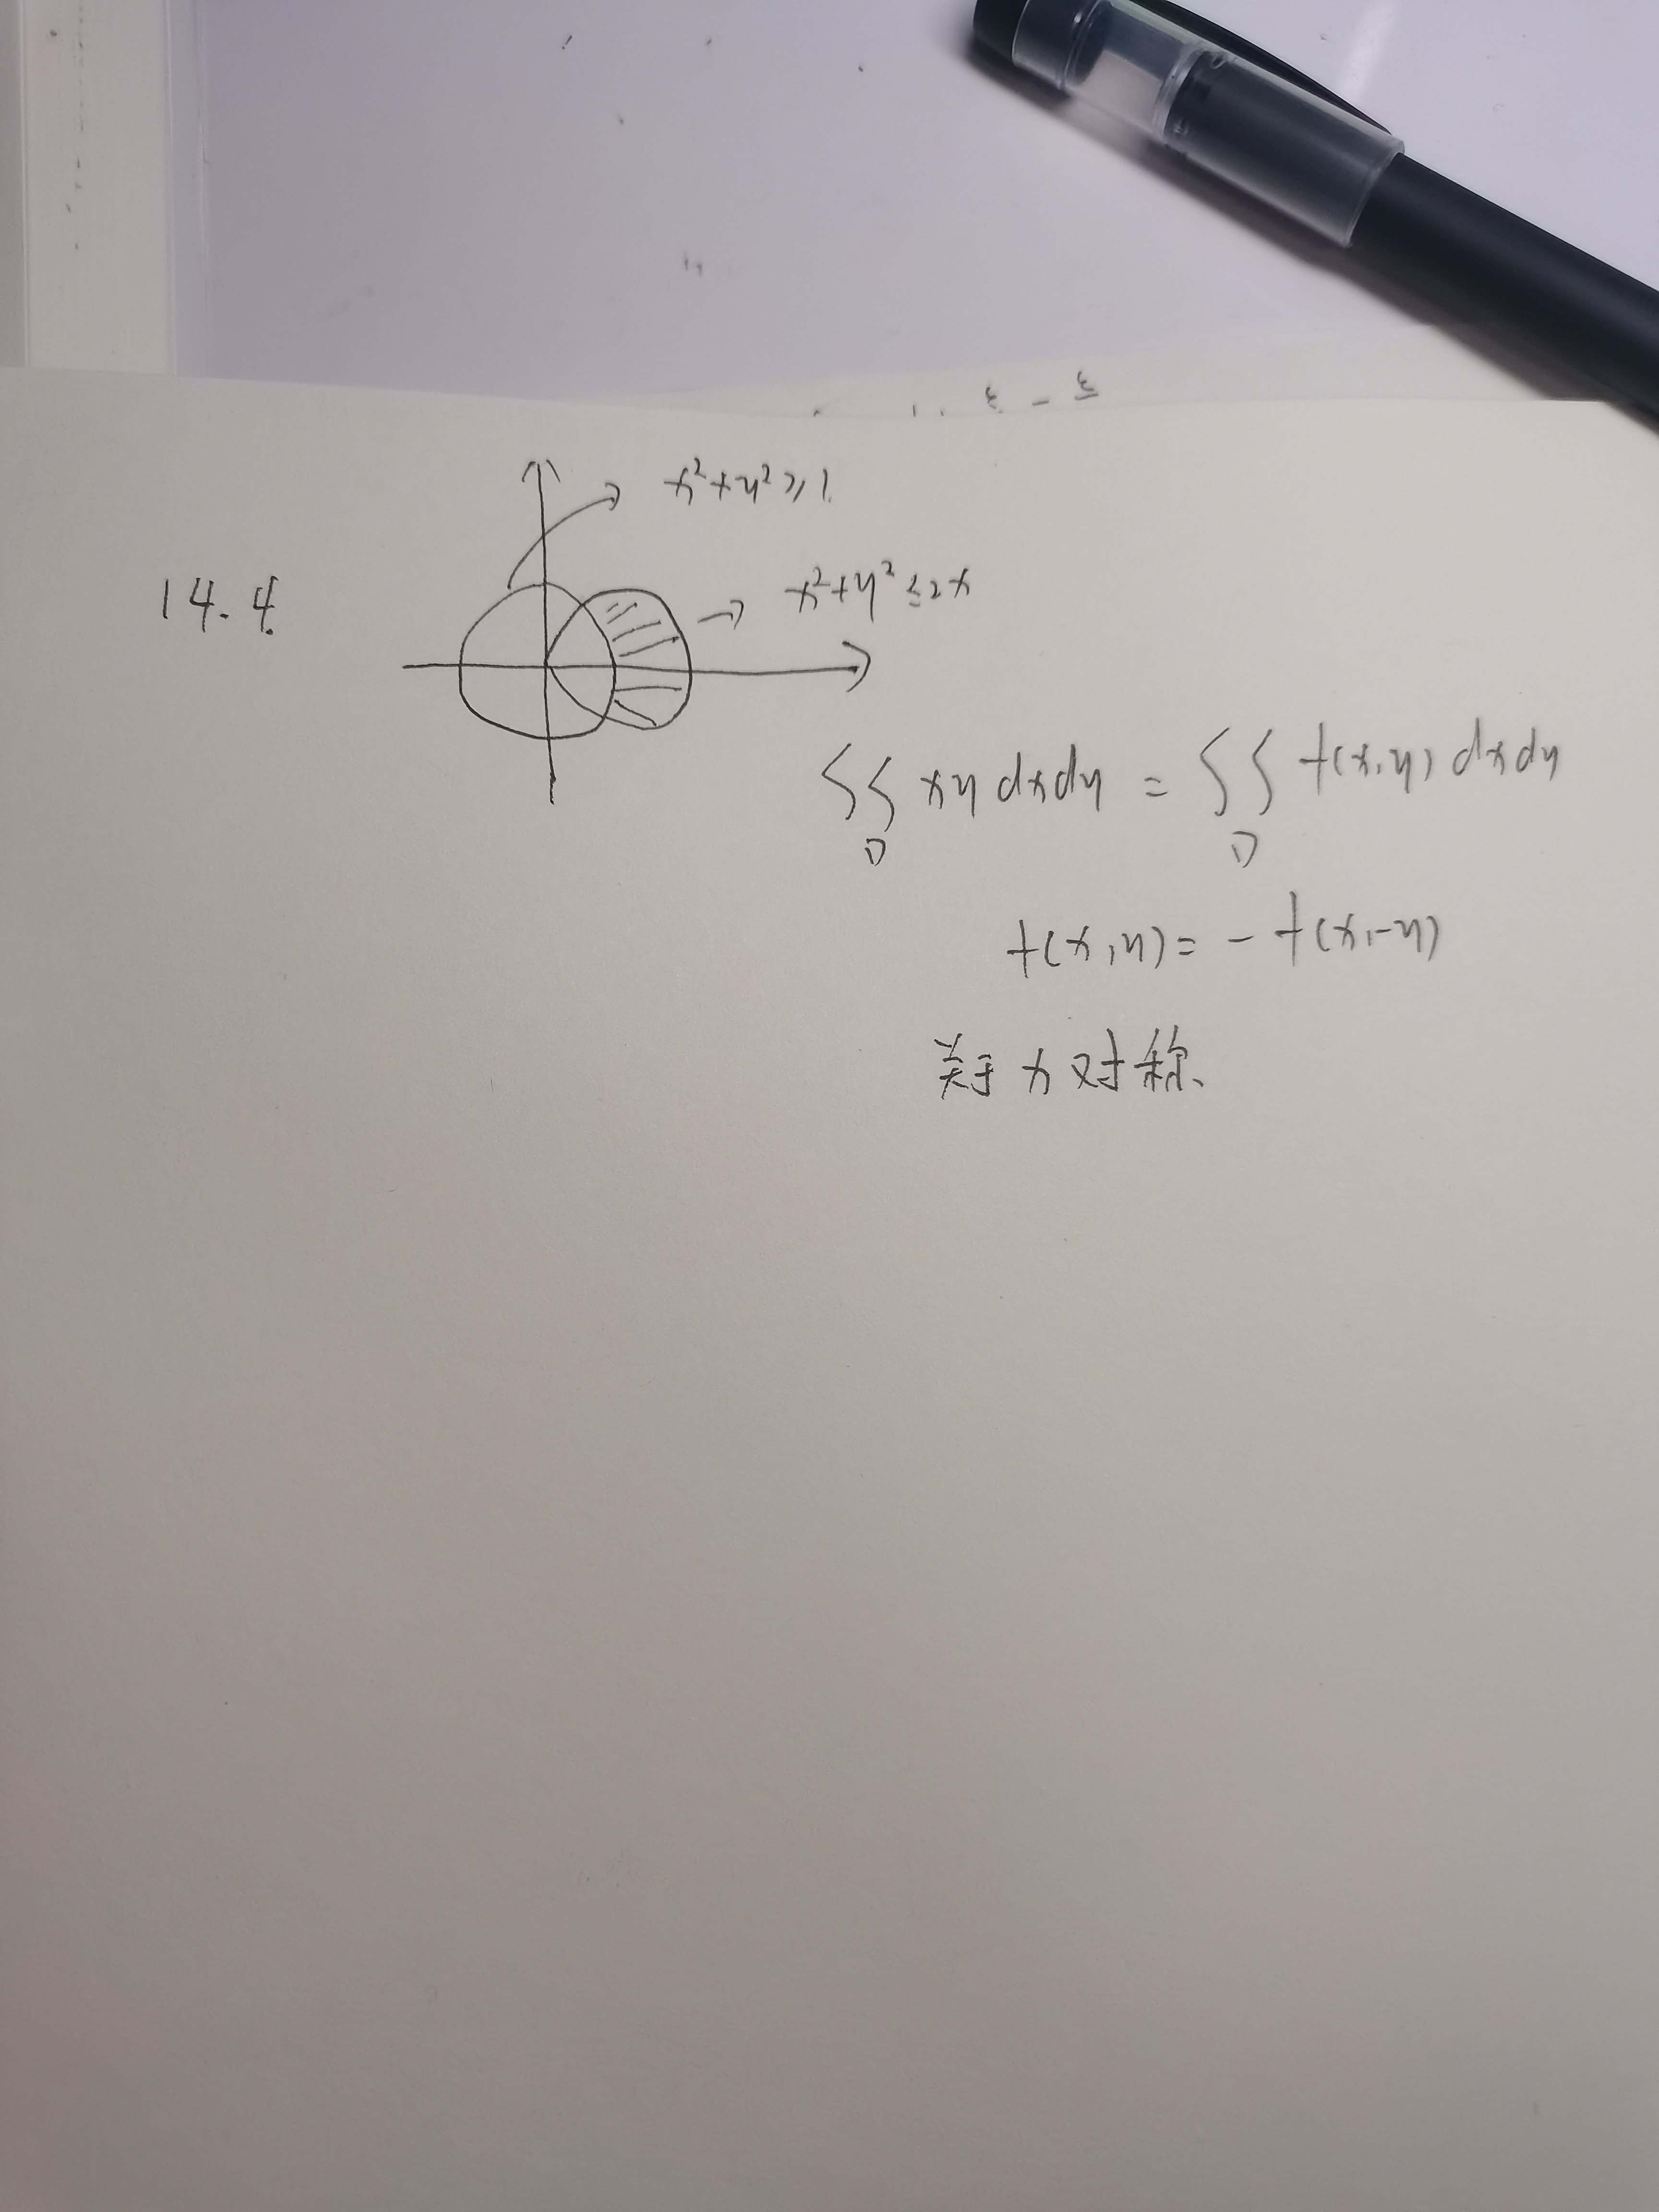 x²+y²≥1.
14.4.
x²+y²≤2x
∬_D xy dxdy = ∬_D f(x,y) dxdy
f(x,y) = -f(x,-y)
关于x对称、